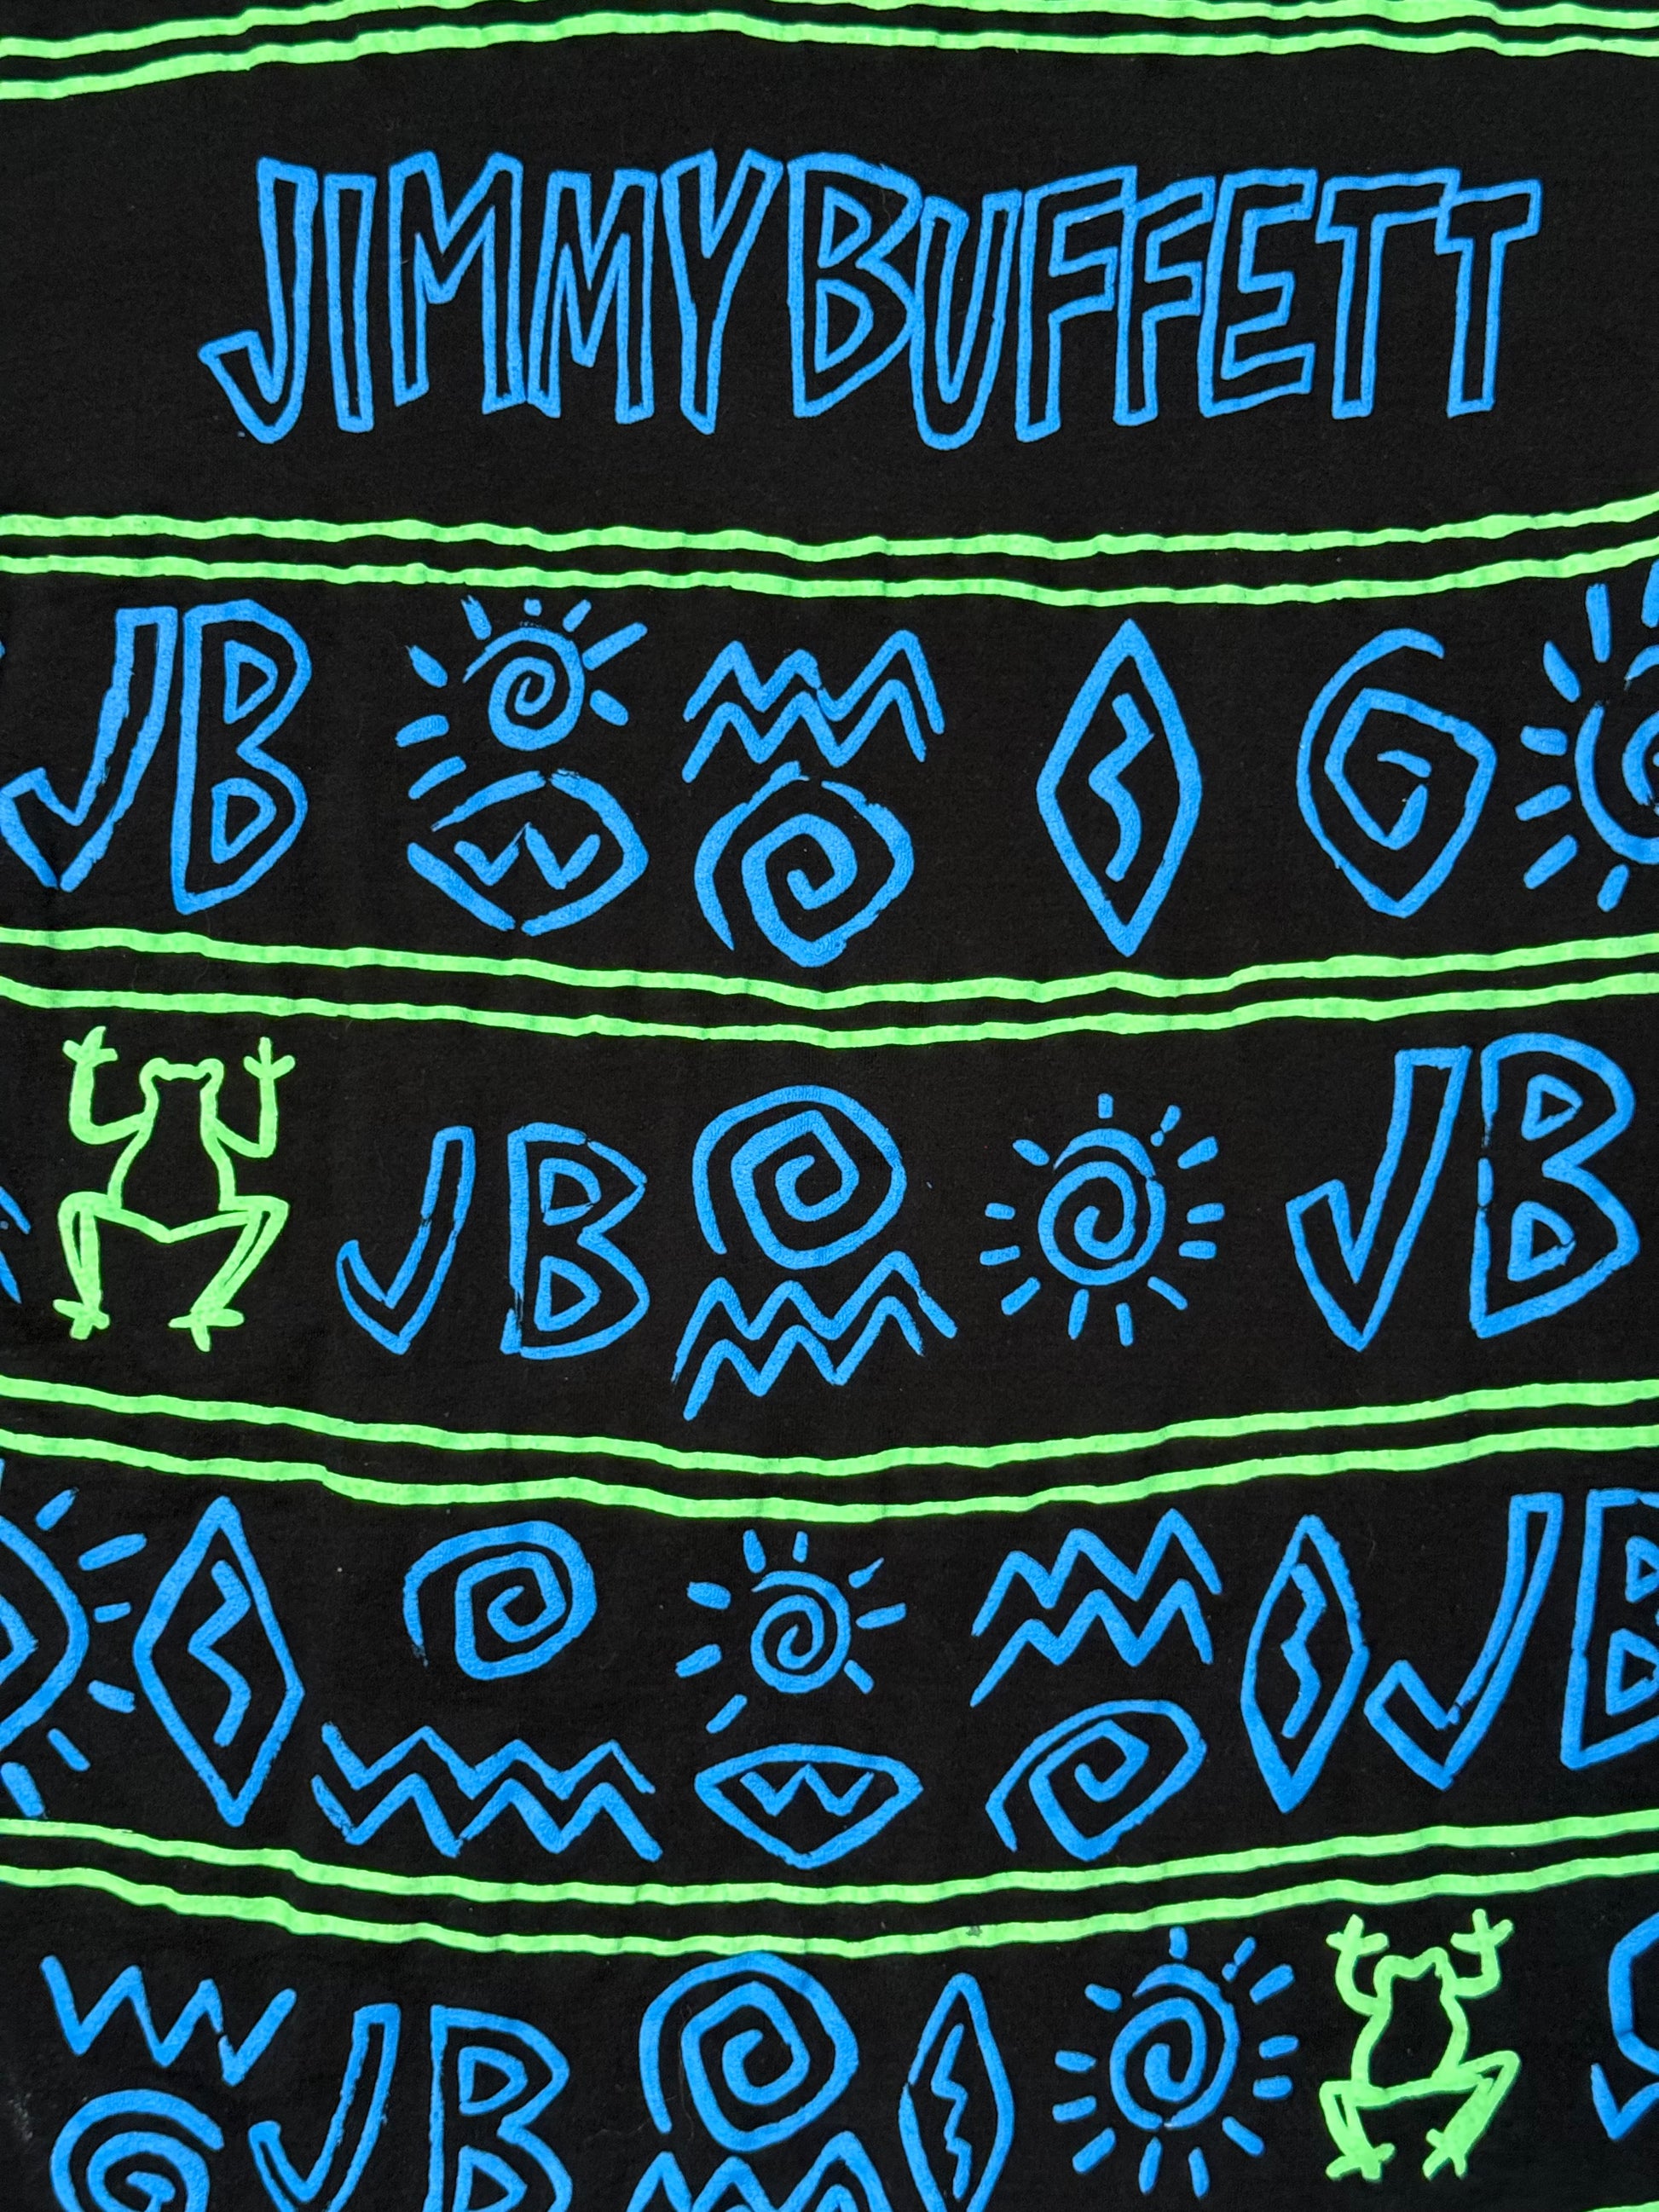 JIMMY BUFFETT
JB
JB JB
JB
JB